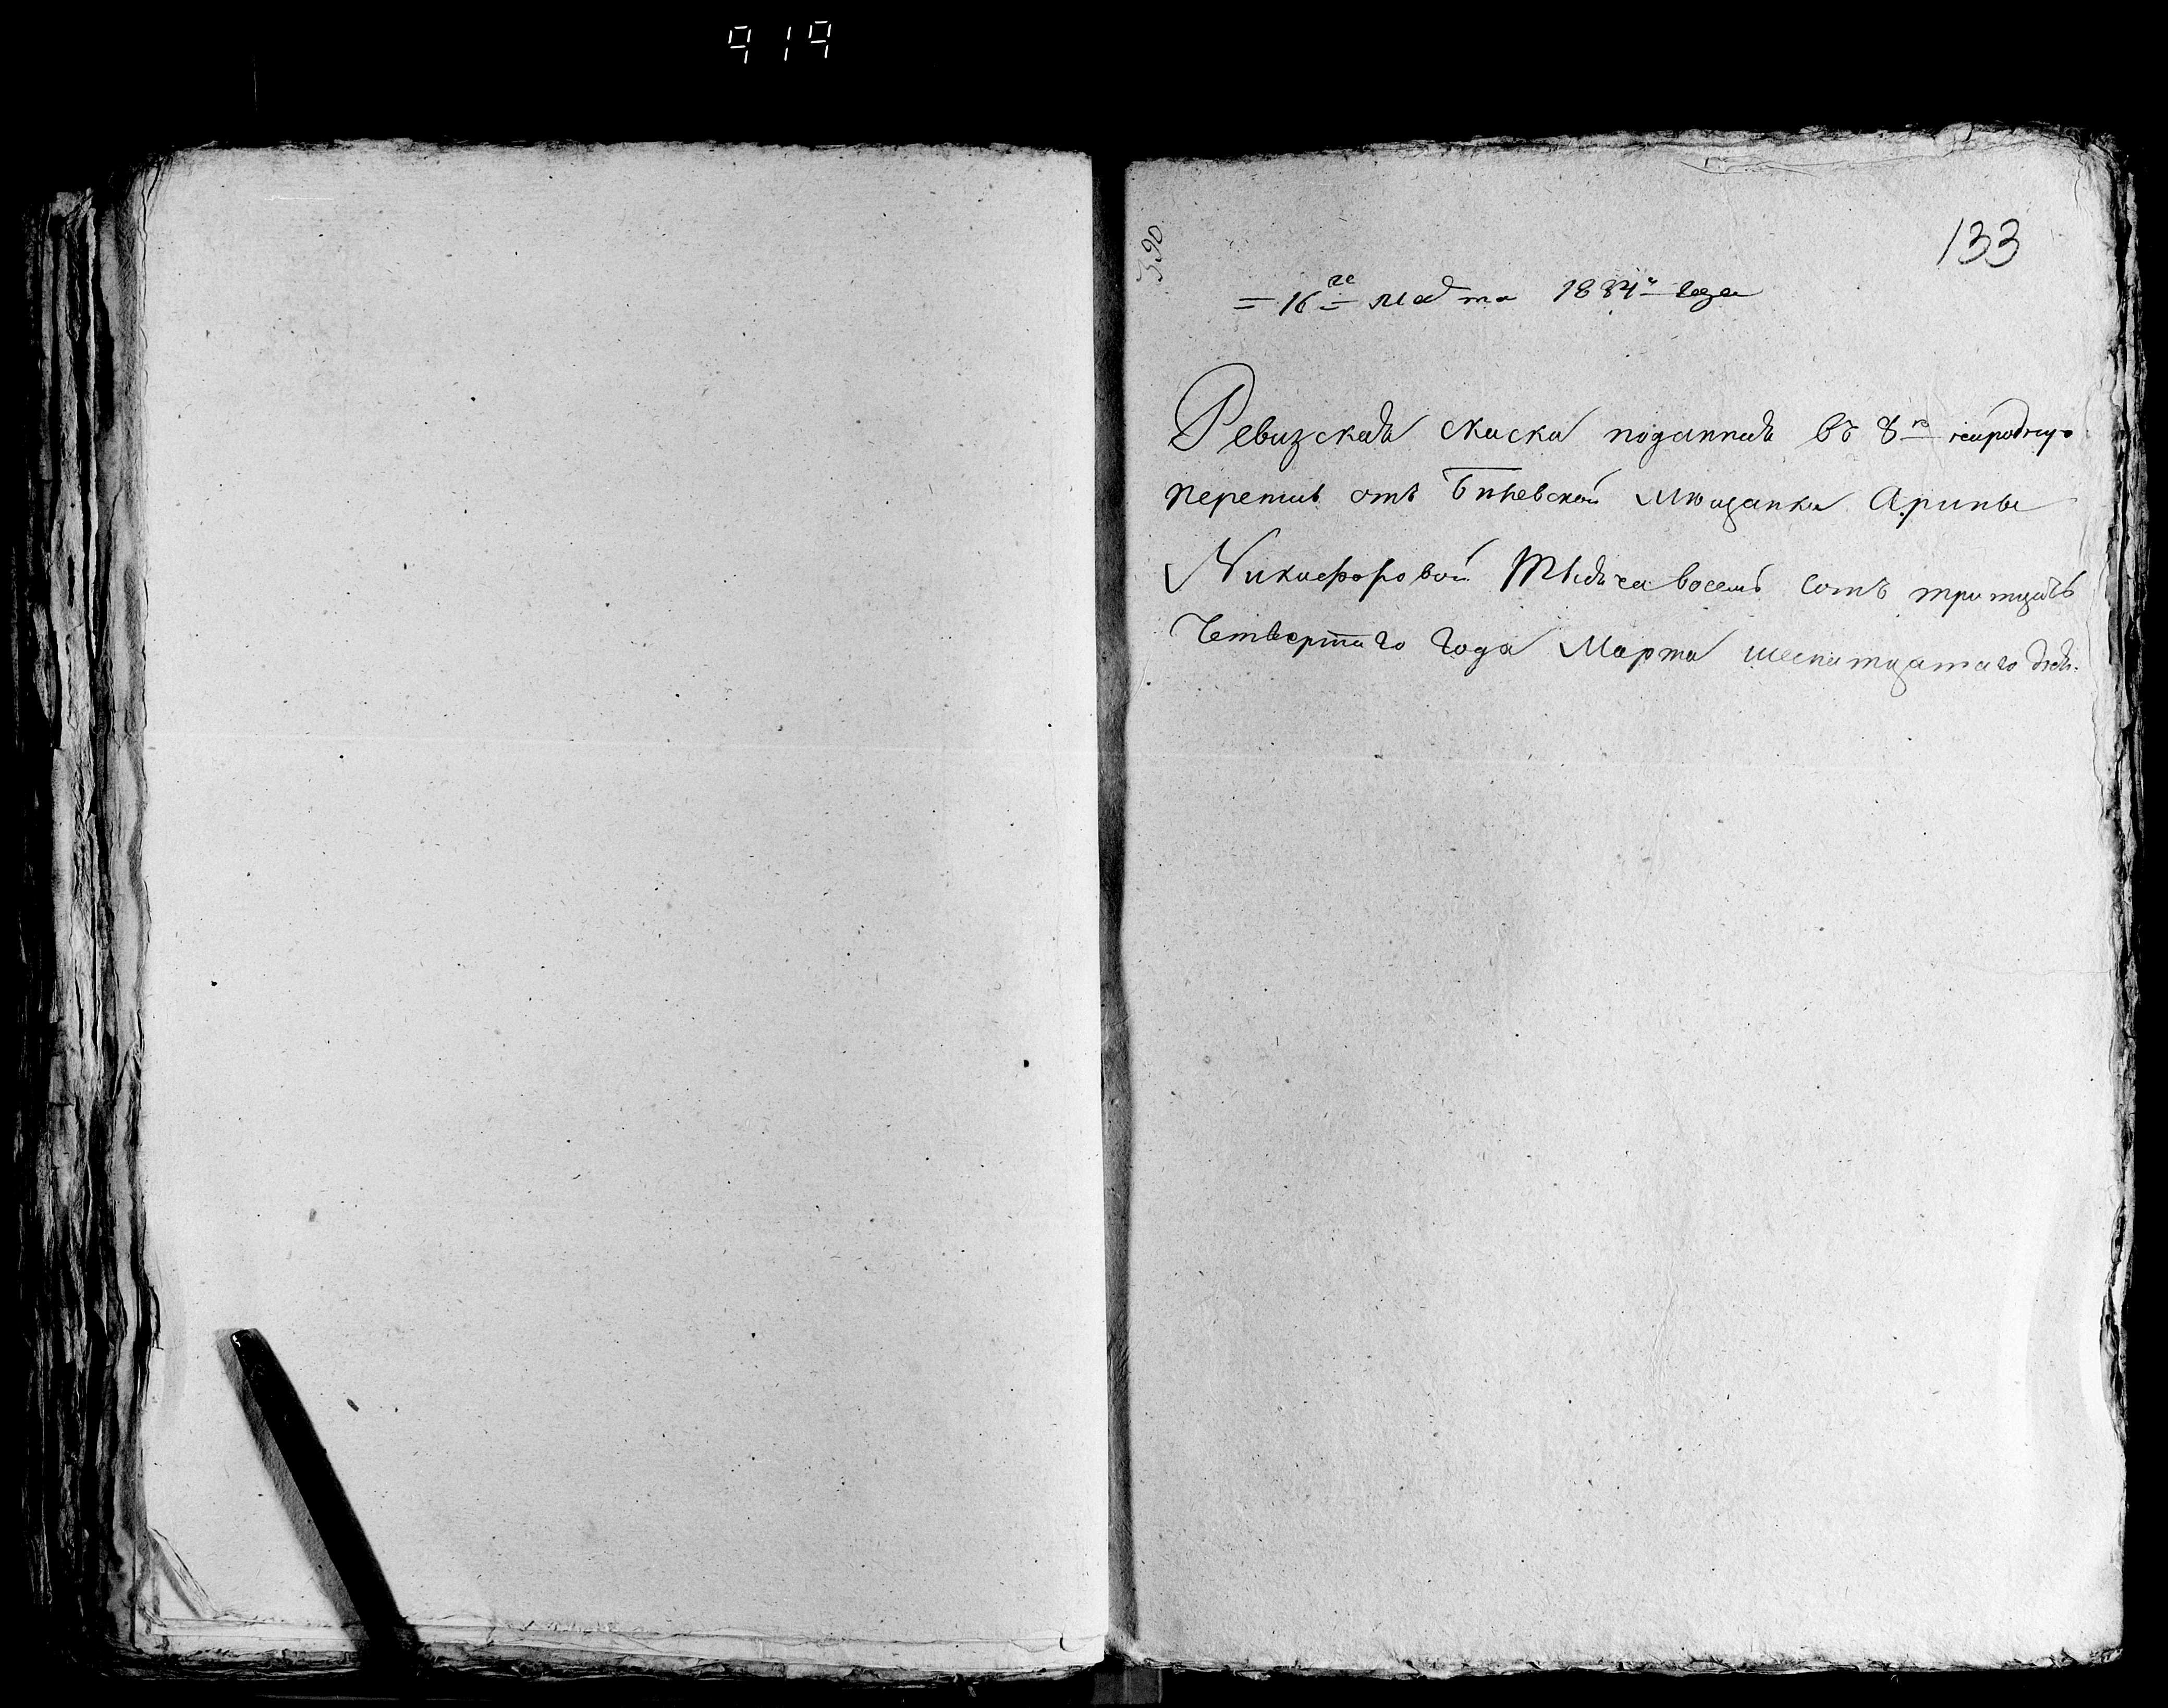 919
390
133
= 16го марта 1834го года
Ревизская скаска поданная въ 8ю народную
перепись отъ мещанки Арины
Никифоровой Тысяча восемь сотъ тритцать
Четвертаго года Марта шеснатцатаго дня.